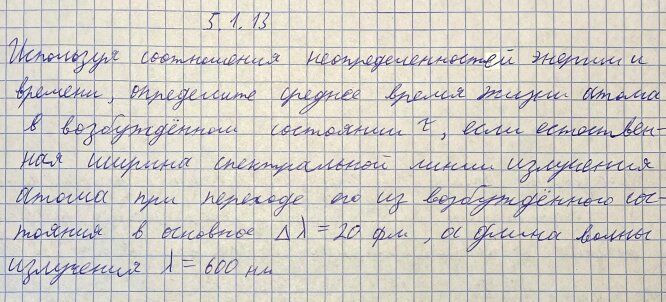 5.1.13
Используя соотношения неопределенностей энергии и
времени, определите среднее время жизни атома
в возбуждённом состоянии τ, если естествен-
ная ширина спектральной линии излучения
атома при переходе его из возбуждённого сос-
тояния в основное Δλ = 20 фм, а длина волны
излучения λ = 600 нм